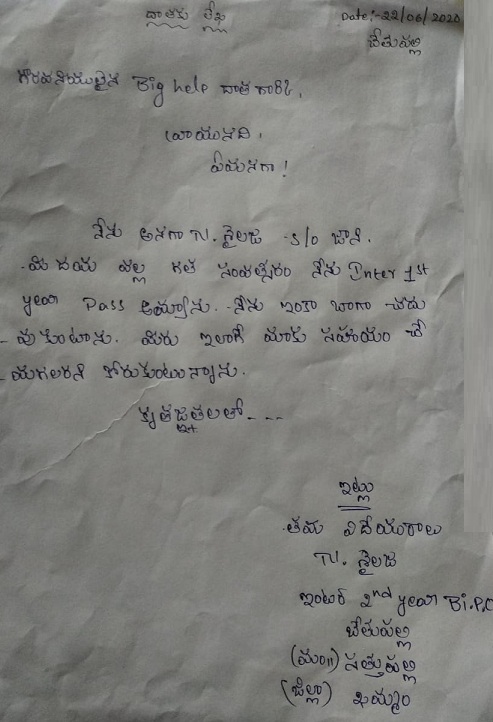 దాతకు లేఖ
Date:-22/06/2020
బేతుపల్లి
గౌరవనీయులైన Big help దాత గారికి,
వ్రాయునది,
ఏమనగా!
నేను అనగా N. శైలజ s/o జాన.
మీ దయ వల్ల గత సంవత్సరం నేను Inter 1st
year Pass అయ్యాను. నేను ఇంకా బాగా చదు
-వుకుంటాను. మీరు ఇలాగే మాకు సహాయం చే
-యగలరని కోరుకుంటున్నాను.
కృతజ్ఞతలతో----
ఇట్లు
తమ విధేయురాలు
N. శైలజ
ఇంటర్ 2nd year Bi.P.C
బేతుపల్లి
(మం॥) సత్తుపల్లి
(జిల్లా) ఖమ్మం